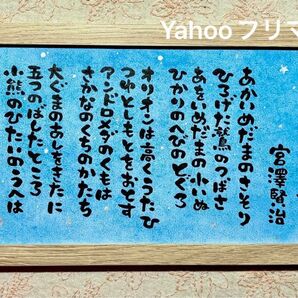 Yahooフリマ
宮澤賢治
あかいめだまのさそり
ひろげた鷲のつばさ
あをいめだまの小いぬ
ひかりのへびのとぐろ
オリオンは高くうたひ
つゆとしもとをおとす
アンドロメダのくもは
さかなのくちのかたち
大ぐまのあしをきたに
五つのばしたところ
小熊のひたいのうへは